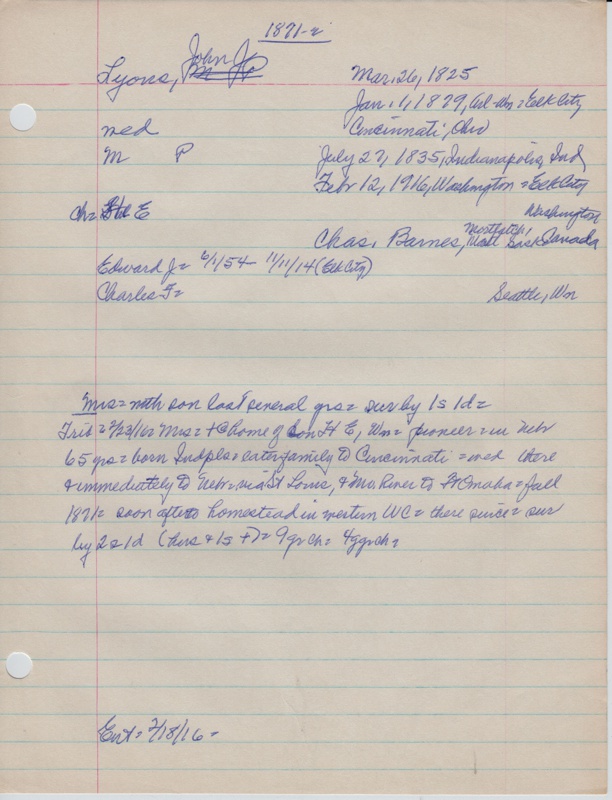 1871-2
Lyons, John J
Mar. 26, 1825
Jan. 1, 1879, Arl-Wn = Elk City
med
Cincinnati, Ohio
M P
July 27, 1835, Indianapolis, Ind
Febr 12, 1916, Washington = Elk City
ch = E
Washington
Chas. Barnes, Canada
Edward J = 6/1/54 - 11/11/14 (Elk City)
Charles F =
Seattle, Wn
Mrs = with son last several yrs = sur by 1s 1d =
Trib = 2/23/16 = Mrs = + @ home of son H E, Wn = pioneer = in Nebr
65 yrs = born Indpls = later family to Cincinnati = med there
& immediately to Nebr = via St Louis, & Mo River to Ft Omaha = fall
1871 = soon after to homestead in western WC = there since = sur
by 2 s 1d (hers & 1s +) = 9 gr ch = 4 ggrch =
Ent = 2/18/16 =